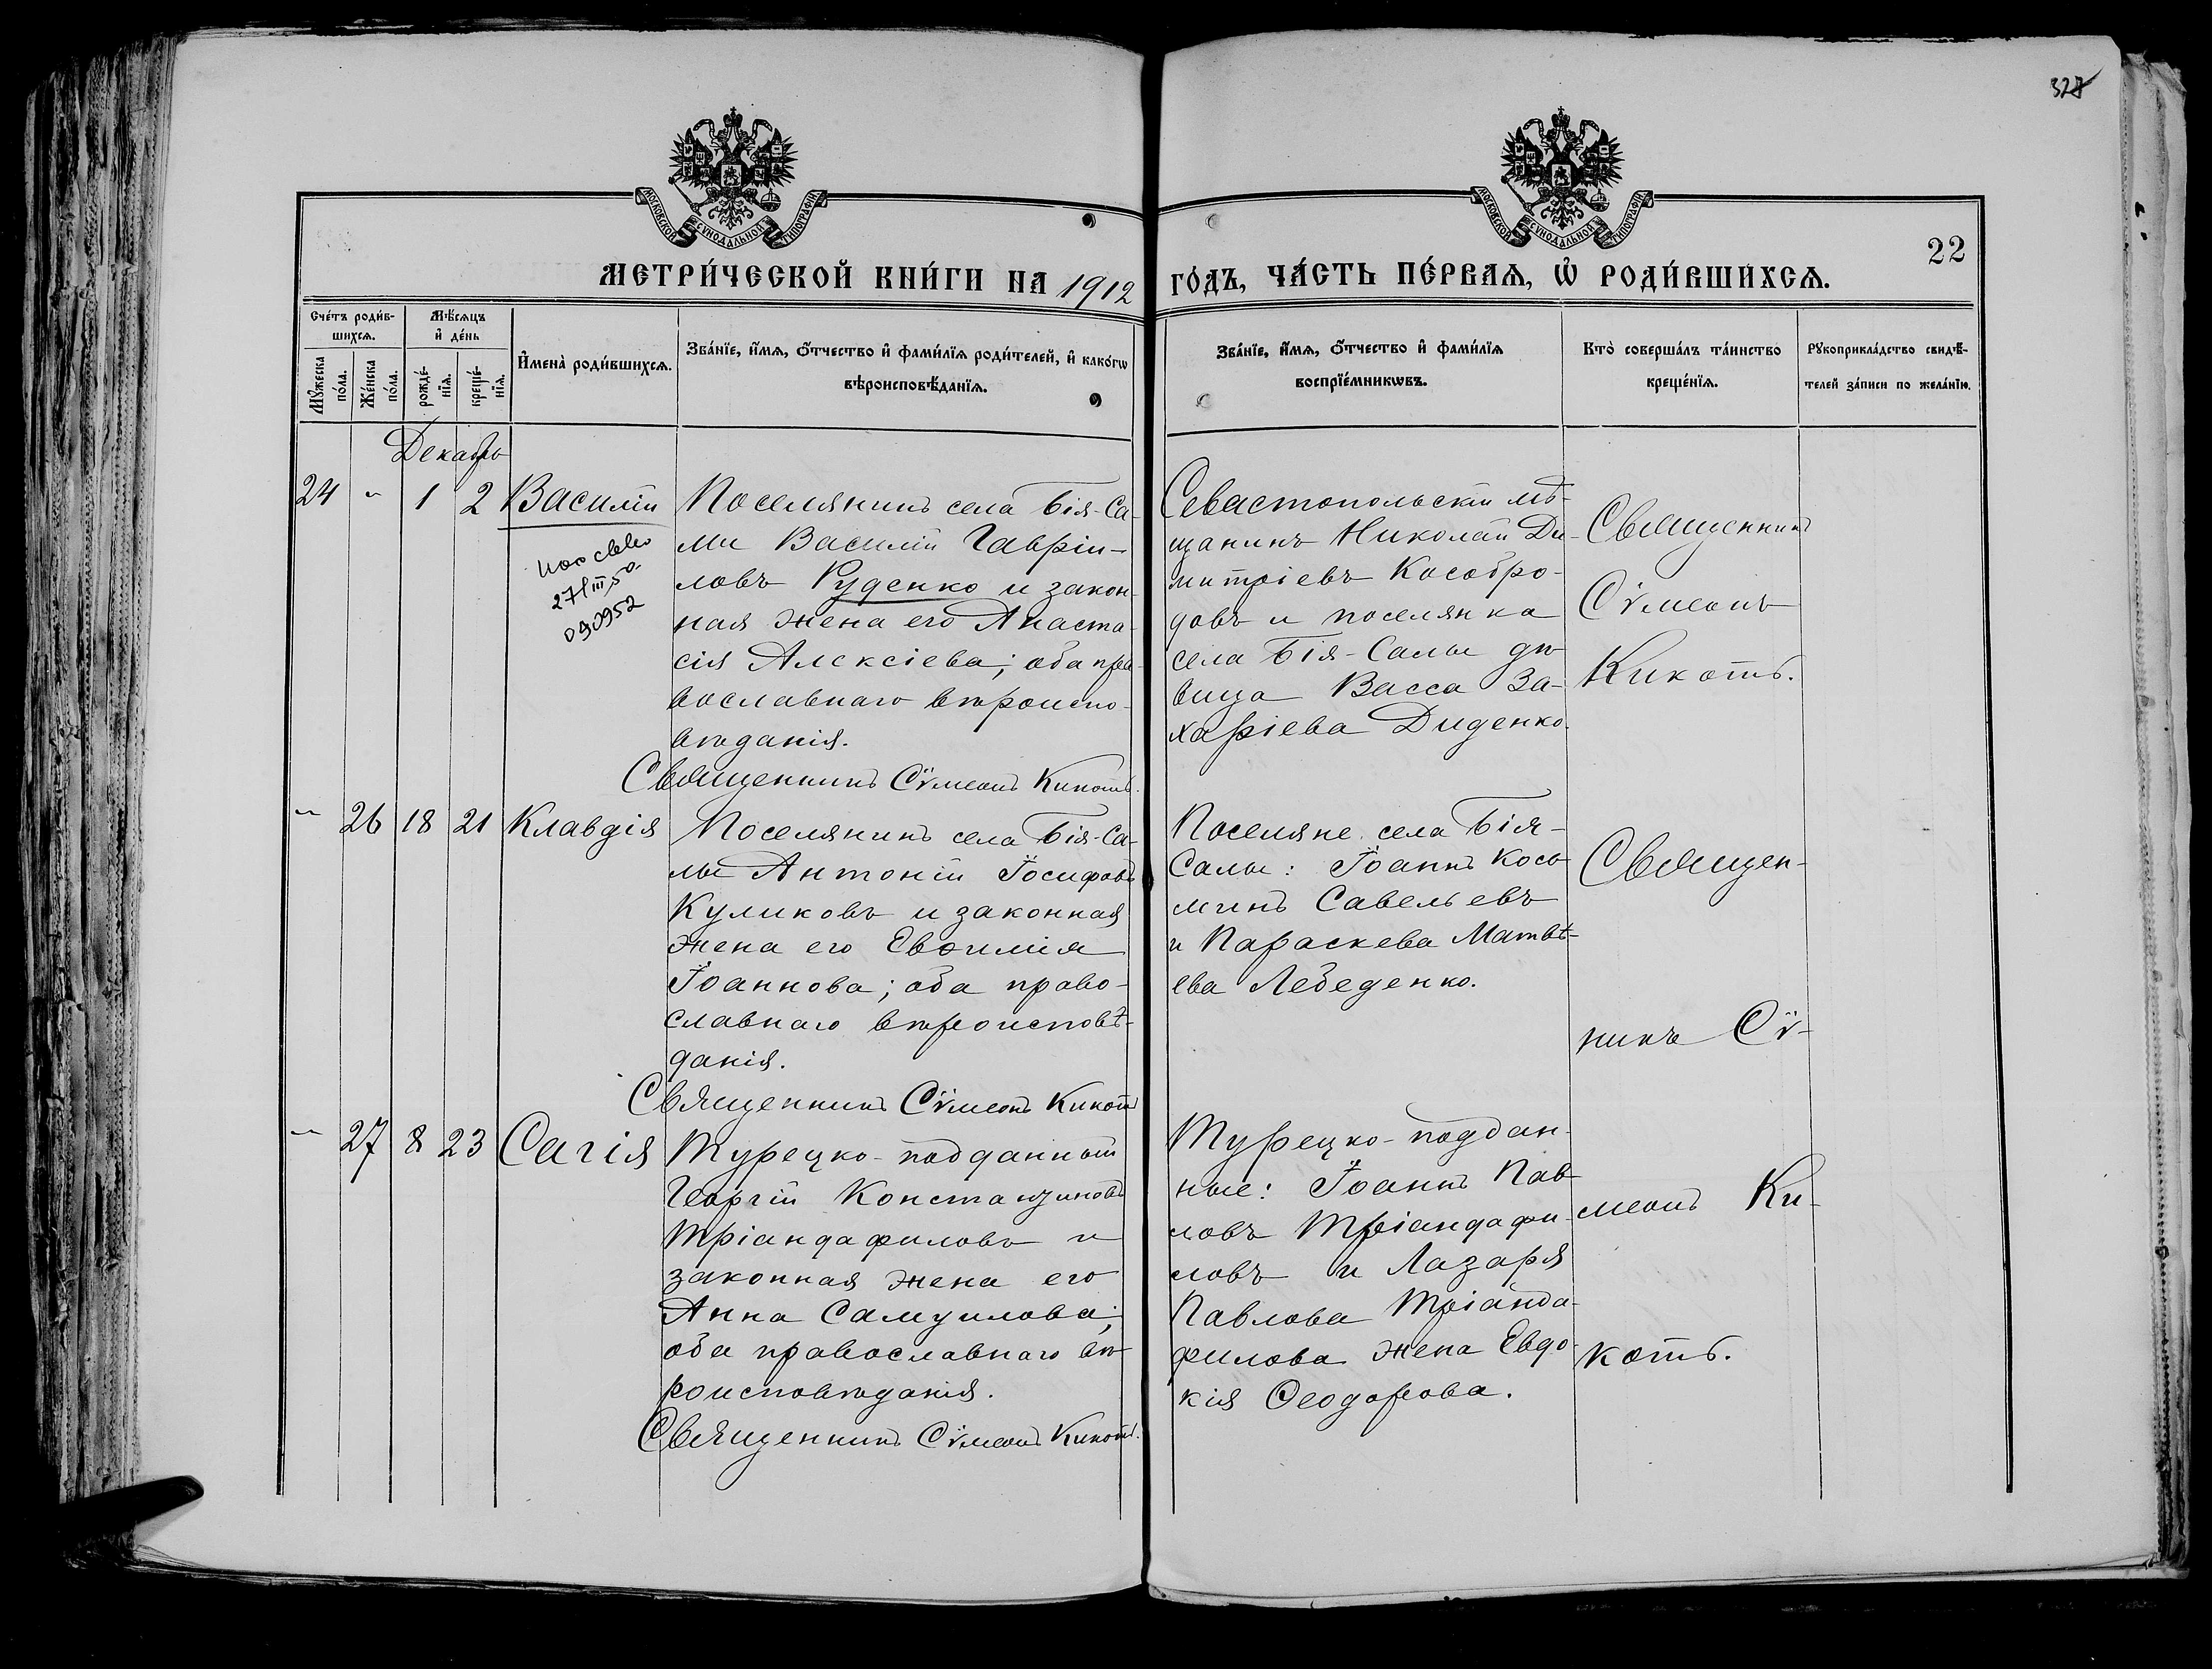 328
МОСКОВСКОЙ СѴНОДАЛЬНОЙ ТИПОГРАФІИ
МОСКОВСКОЙ СѴНОДАЛЬНОЙ ТИПОГРАФІИ
22
МЕТРИ́ЧЕСКОЙ КНИ́ГИ НА 1912 ГО́ДЪ, ЧА́СТЬ ПЕ́РВАЯ, Ѡ҆ РОДИ́ВШИХСЯ.
Сче́тъ роди́в-
шихся.
Мѣ́сяцъ
и҆ де́нь
Му́жеска
по́ла.
Же́нска
по́ла.
рожде́-
нїя.
креще́-
нїя.
И҆мена̀ роди́вшихся.
Зва́нїе, и҆́мя, ѻ҆́тчество и҆ фами́лїя роди́телей, и҆ како́гѡ
вѣроисповѣ́данїя.
Зва́нїе, и҆́мя, ѻ҆́тчество и҆ фами́лїя
воспрїе́мникѡвъ.
Кто̀ соверша́лъ та́инство
креще́нїя.
Рꙋкоприкла́дство свидѣ́-
телей за́писи по жела́нїю.
Декабрь
24 " 1 2 Василій
27/III 50.
090952
Поселянинъ села Бія-Са-
лы Василій Гавріи-
ловъ Руденко и закон-
ная жена его Анаста-
сія Алексіева; оба пра-
вославнаго вѣроиспо-
вѣданія.
Священникъ Сѷмеонъ Кикоть.
Севастопольскій мѣ-
щанинъ Николай Ди-
митріевъ Кособро-
довъ и поселянка
села Бія-Салы дѣ-
вица Васса За-
харіева Диденко.
Священникъ
Сѷмеонъ
Кикоть.
" 26 18 21 Клавдія
Поселянинъ села Бія-Са-
лы Антоній Іосифовъ
Куликовъ и законная
жена его Евѳимія
Іоаннова; оба право-
славнаго вѣроисповѣ-
данія.
Священникъ Сѷмеонъ Кикоть
Поселяне села Бія-
Салы: Іоаннъ Кось-
минъ Савельевъ
и Параскева Матвѣ-
ева Лебеденко.
" 27 8 23 Сагія
Турецко-подданный
Георгій Константиновъ
Тріандафиловъ и
законная жена его
Анна Самуилова;
оба православнаго вѣ-
роисповѣданія.
Священникъ Сѷмеонъ Кикоть.
Турецко-поддан-
ные: Іоаннъ Пав-
ловъ Тріандафи-
ловъ и Лазаря
Павлова Тріанда-
филова жена Евдо-
кія Ѳеодорова.
Священ-
никъ Сѷ-
меонъ Ки-
коть.